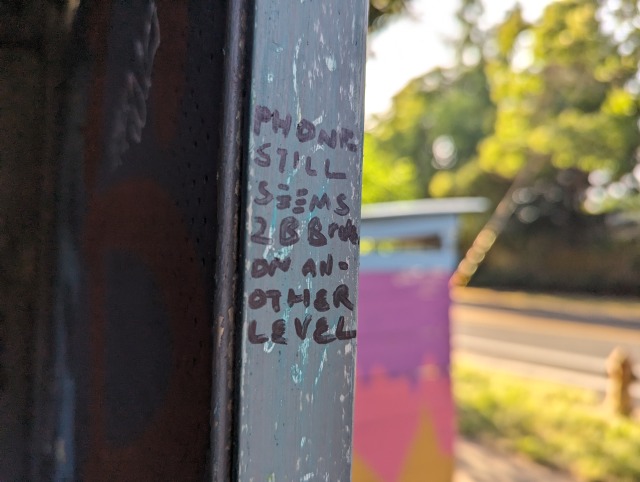 PHONE
STILL
SEEMS
2 B B
ON AN-
OTHER
LEVEL